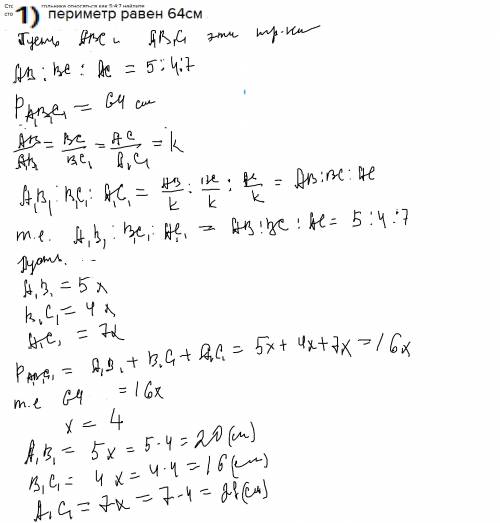 1) периметр равен 64см
Пусть ABC и A₁B₁C₁ эти тр-ки
AB : BC : AC = 5:4:7
P A₁B₁C₁ = 64 см
AB/A₁B₁ = BC/B₁C₁ = AC/A₁C₁ = k
A₁B₁ : B₁C₁ : A₁C₁ = AB/k : BC/k : AC/k = AB:BC:AC
т.е. A₁B₁ : B₁C₁ : A₁C₁ = AB : BC : AC = 5:4:7
Пусть ...
A₁B₁ = 5x
B₁C₁ = 4x
A₁C₁ = 7x
P A₁B₁C₁ = A₁B₁ + B₁C₁ + A₁C₁ = 5x + 4x + 7x = 16x
т.е 64 = 16x
x = 4
A₁B₁ = 5x = 5·4 = 20 (см)
B₁C₁ = 4x = 4·4 = 16 (см)
A₁C₁ = 7x = 7·4 = 28 (см)